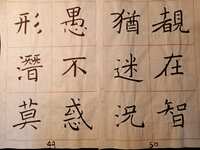 愚不惑
形潛莫
49
覩在智
猶迷況
50